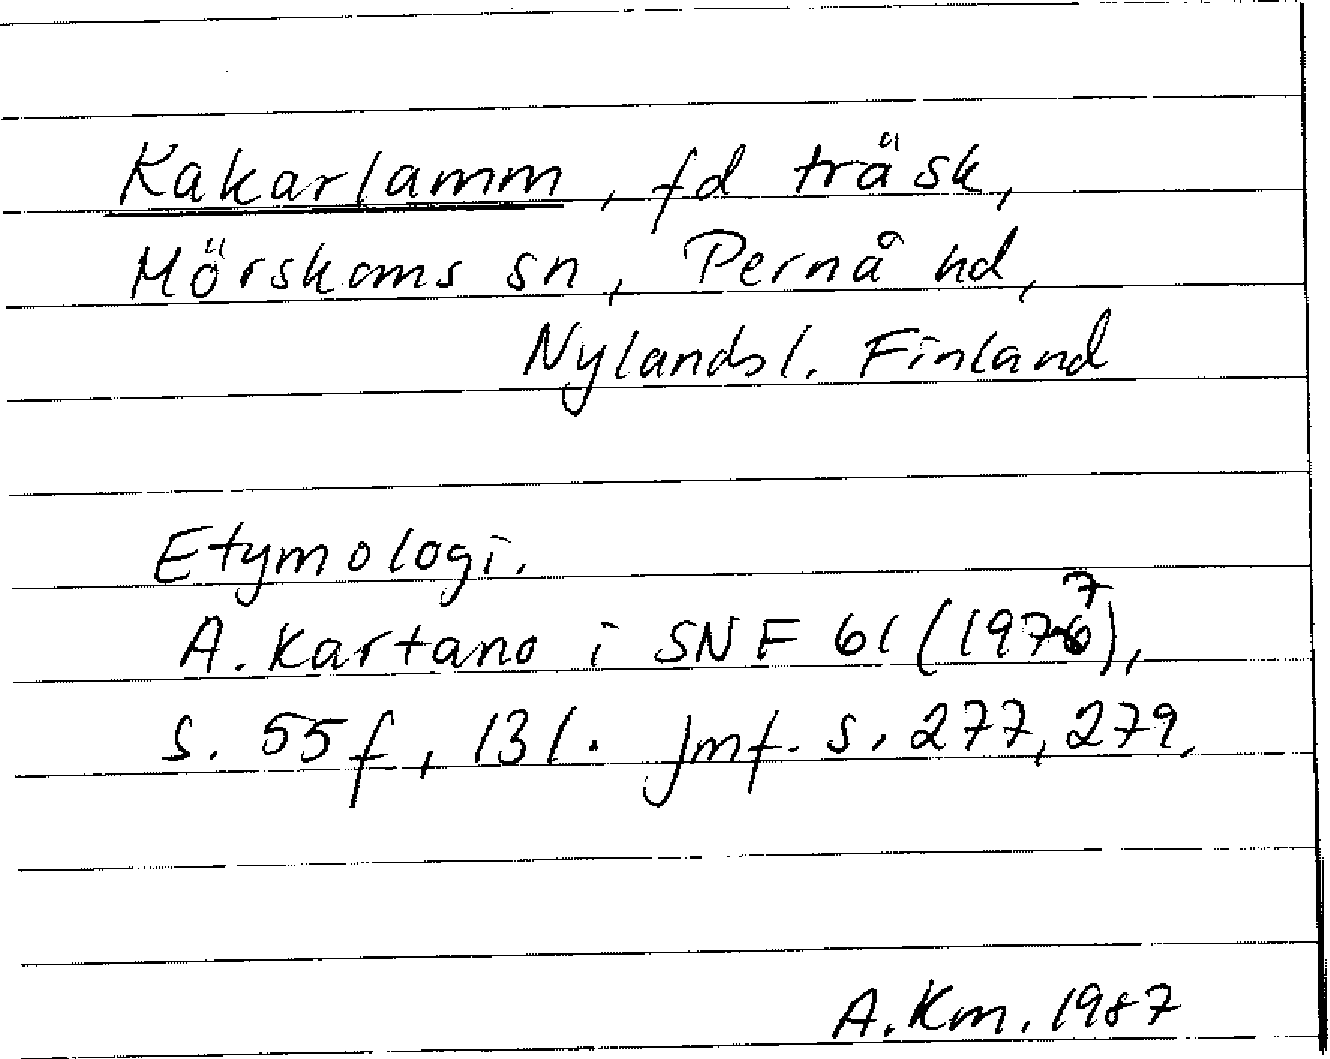 Kakarlamm, fd träsk,
Mörskoms sn, Pernå hd,
Nylands l. Finland
Etymologi.
A. Kartano i SNF 61 (1977),
s. 55f, 131. Jmf. s. 277, 279.
A. Km. 1987